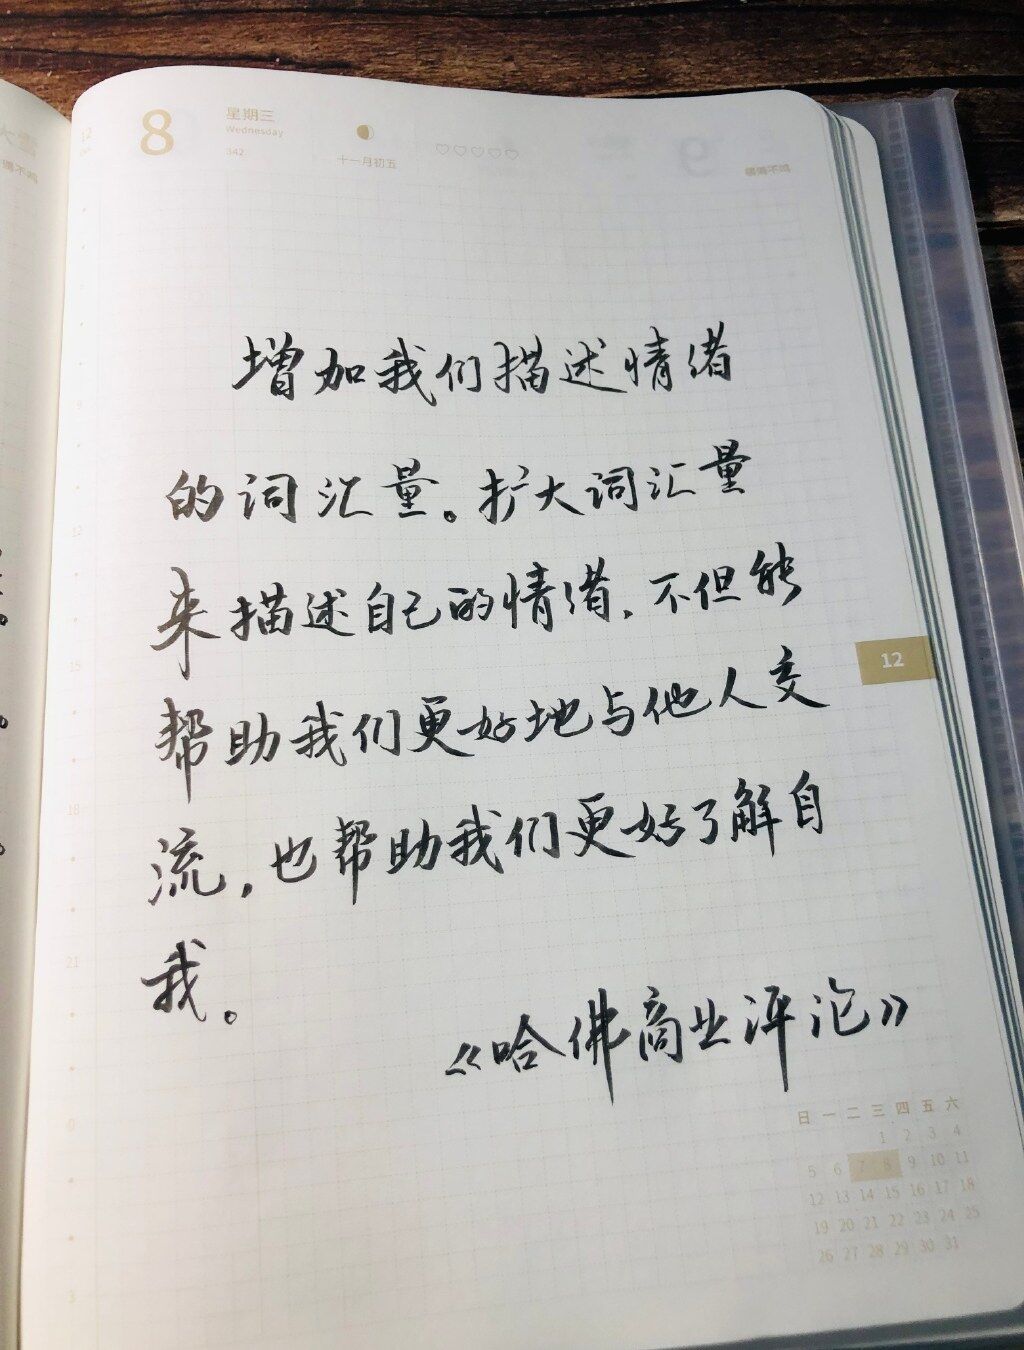 12
8
星期三
Wednesday
342
十一月初五
增加我们描述情绪
的词汇量。扩大词汇量
来描述自己的情绪,不但能
帮助我们更好地与他人交
流,也帮助我们更好了解自
我。
《哈佛商业评论》
12
12
15
18
21
0
3
日 一 二 三 四 五 六
1 2 3 4
5 6 7 8 9 10 11
12 13 14 15 16 17 18
19 20 21 22 23 24 25
26 27 28 29 30 31